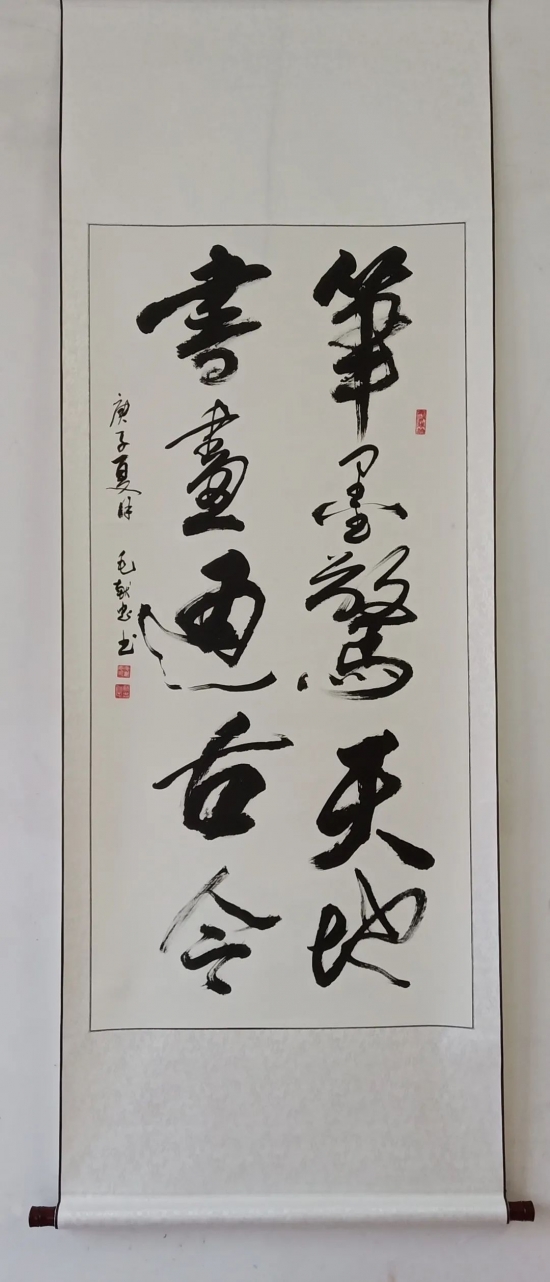 筆墨驚天地
書畫通古今
庚子夏月 毛武忠书